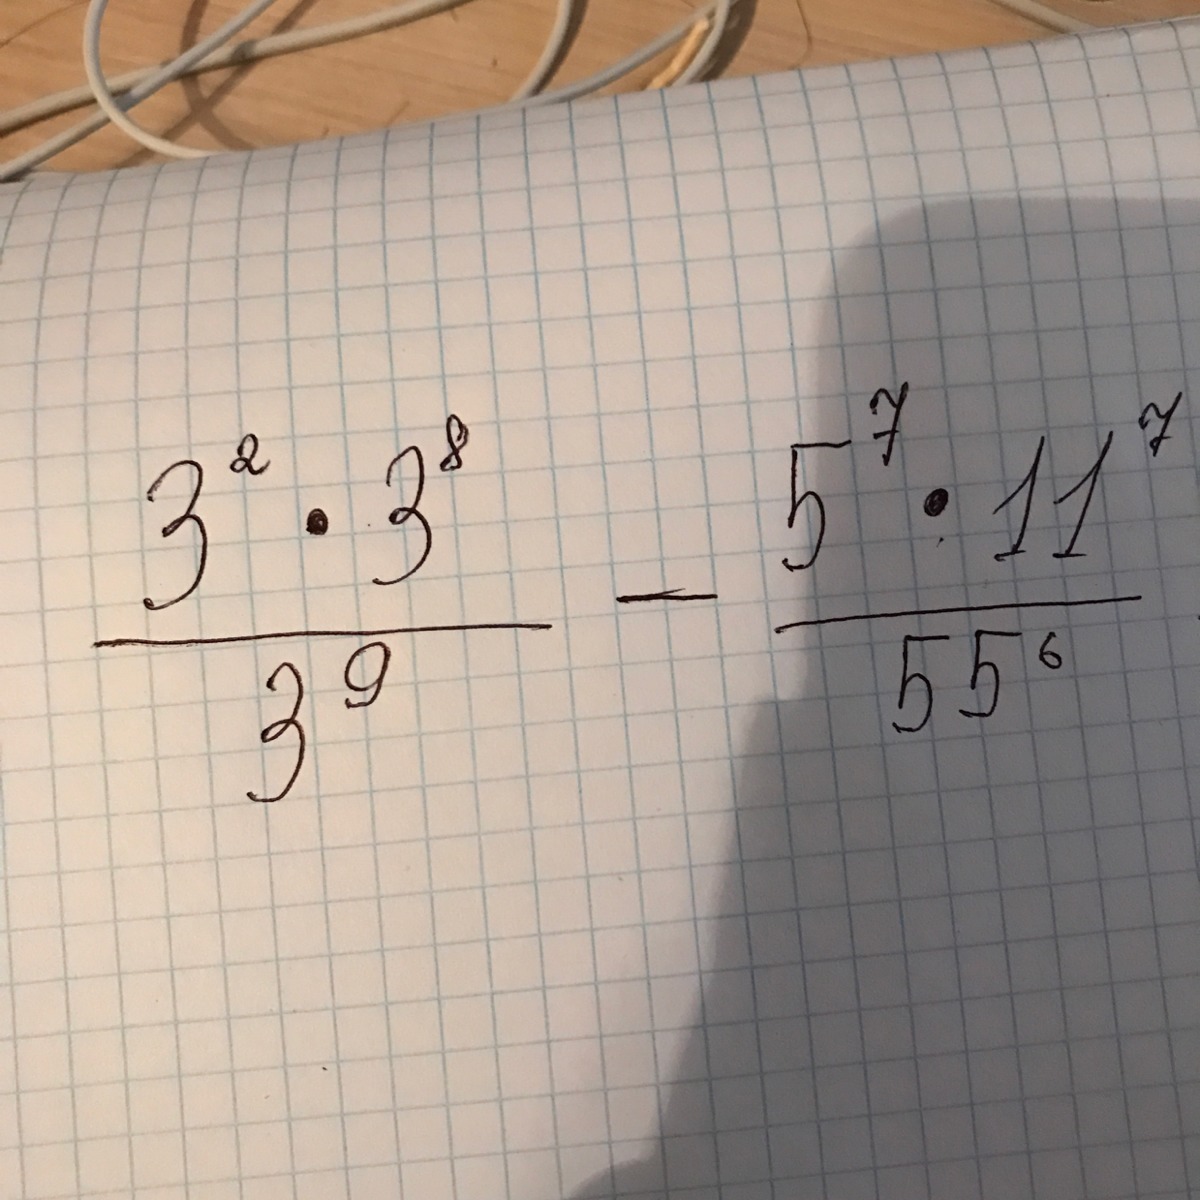 3² • 3⁸ / 3⁹ − 5⁷ • 11⁷ / 55⁶